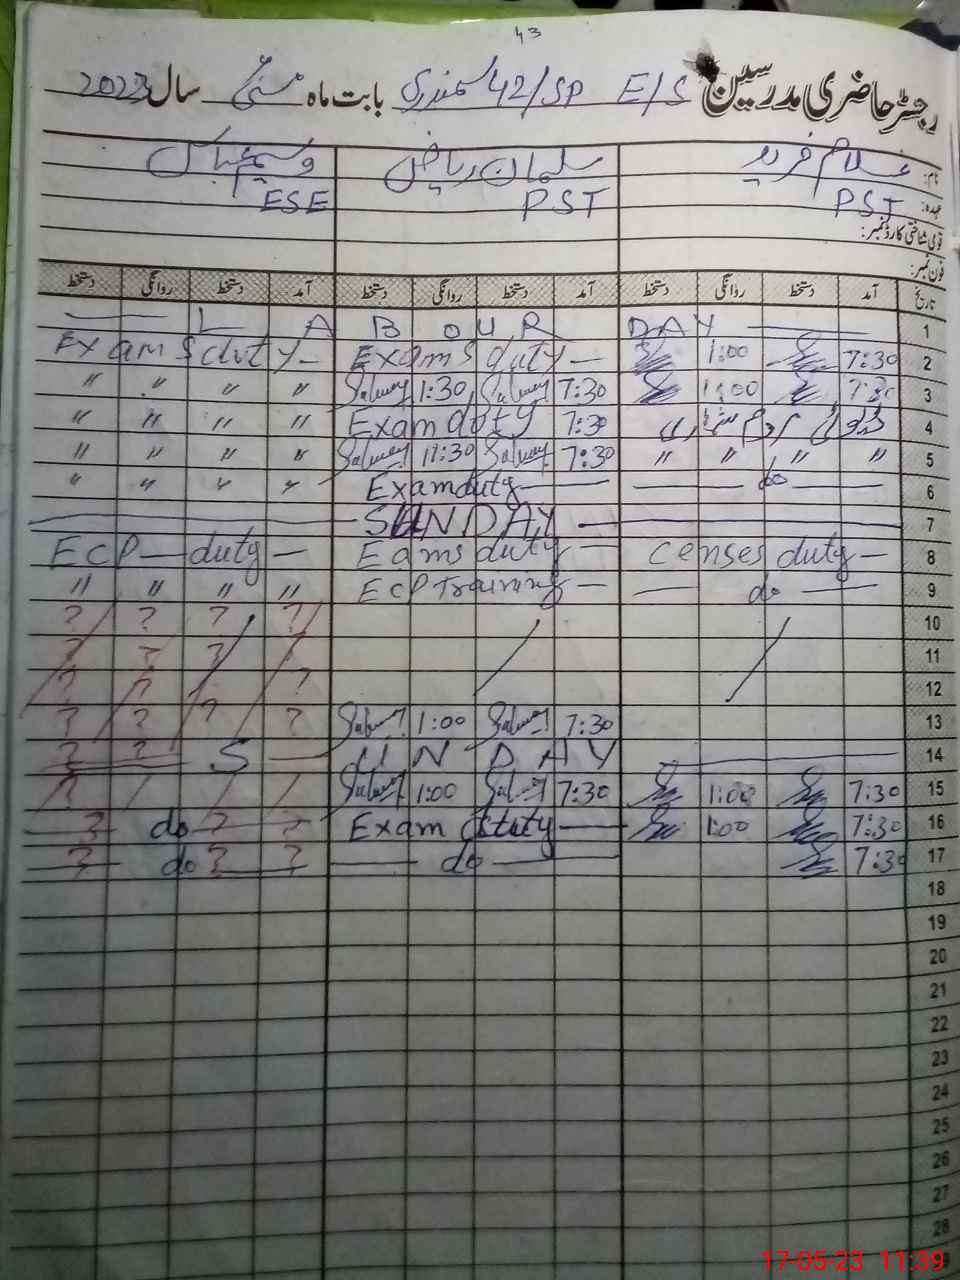 43
رجسٹر حاضری مدرسین E/S 42/SP سمندری بابت ماہ مئی سال 2023
نام: غلام فرید سلمان ریاض وسیم عباس
عہدہ: PST PST ESE
قومی شناختی کارڈ نمبر:
فون نمبر:
تاریخ آمد دستخط روانگی دستخط آمد دستخط روانگی دستخط آمد دستخط روانگی دستخط
L A B O U R DAY 1
Exams duty Exams duty 1:00 7:30 2
" " " " 1:30 7:30 1:00 7:30 3
" " " " Exam duty 7:30 4
" " " " 11:30 7:30 " " " " 5
" " " " Exam duty do 6
SUNDAY 7
ECP duty Eams duty censes duty 8
" " " " ECP Training do 9
? ? ? ? 10
? ? ? 11
? ? ? 12
? ? ? ? 1:00 7:30 13
? ? S U N DAY 14
? 1:00 7:30 1:00 7:30 15
? do ? ? Exam duty 1:00 7:30 16
? do ? ? do 7:30 17
18
19
20
21
22
23
24
25
26
27
28
17-05-23 11:39